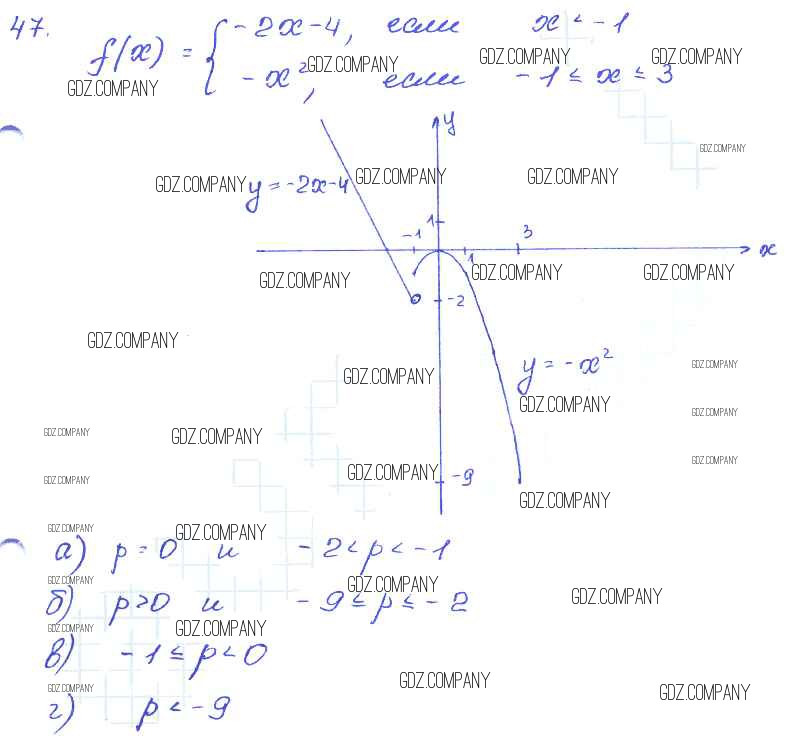 47.
f(x) = { -2x-4, если x < -1
-x², если -1 ≤ x ≤ 3
GDZ.COMPANY GDZ.COMPANY GDZ.COMPANY
GDZ.COMPANY
y
GDZ.COMPANY
GDZ.COMPANY y = -2x-4 GDZ.COMPANY GDZ.COMPANY
1
-1 3
x
1
GDZ.COMPANY GDZ.COMPANY GDZ.COMPANY
-2
GDZ.COMPANY
y = -x²
GDZ.COMPANY
GDZ.COMPANY
GDZ.COMPANY GDZ.COMPANY
GDZ.COMPANY GDZ.COMPANY
GDZ.COMPANY
GDZ.COMPANY -9
GDZ.COMPANY
GDZ.COMPANY
GDZ.COMPANY GDZ.COMPANY
а) p = 0 и -2 < p < -1
GDZ.COMPANY GDZ.COMPANY
б) p > 0 и -9 ≤ p ≤ -2
GDZ.COMPANY
GDZ.COMPANY GDZ.COMPANY
в) -1 ≤ p < 0
GDZ.COMPANY GDZ.COMPANY GDZ.COMPANY
г) p < -9